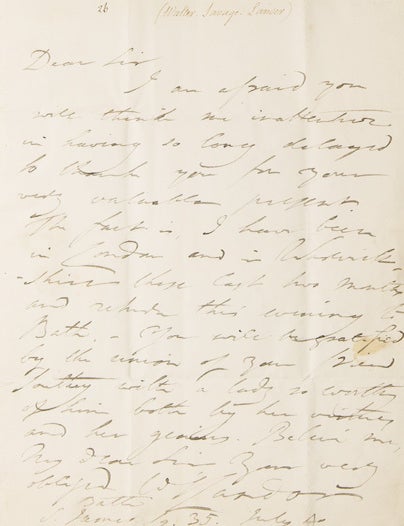 26 (Walter Savage Landor)
Dear Sir
I am afraid you
will think me inattentive
in having so long delayed
to thank you for your
very valuable present
The fact is, I have been
in London and in Warwick-
-shire these last two months
and return this evening to
Bath. – You will be gratified
by the union of your friend
Southey with a lady so worthy
of him both by her virtues
and her genius. Believe me,
My dear Sir Your very
obliged W S Landor
Bath
S. James Sq. 35. July